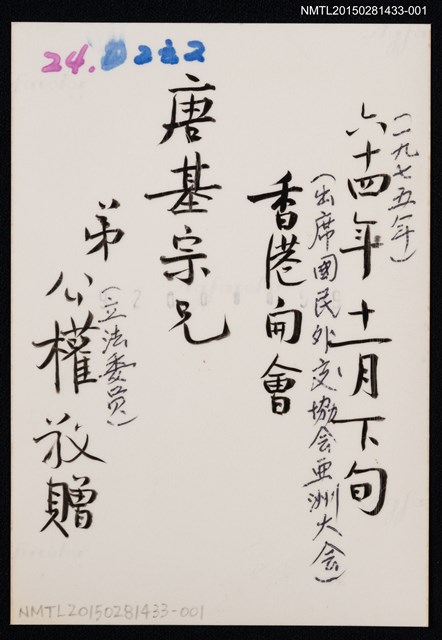 NMTL20150281433-001
24.
222
(一九七五年)
六十四年十一月下旬
(出席國民外交協会亜洲大会)
香港開會
唐基宗兄
弟公權敬贈
(立法委員)
NMTL20150281433-001